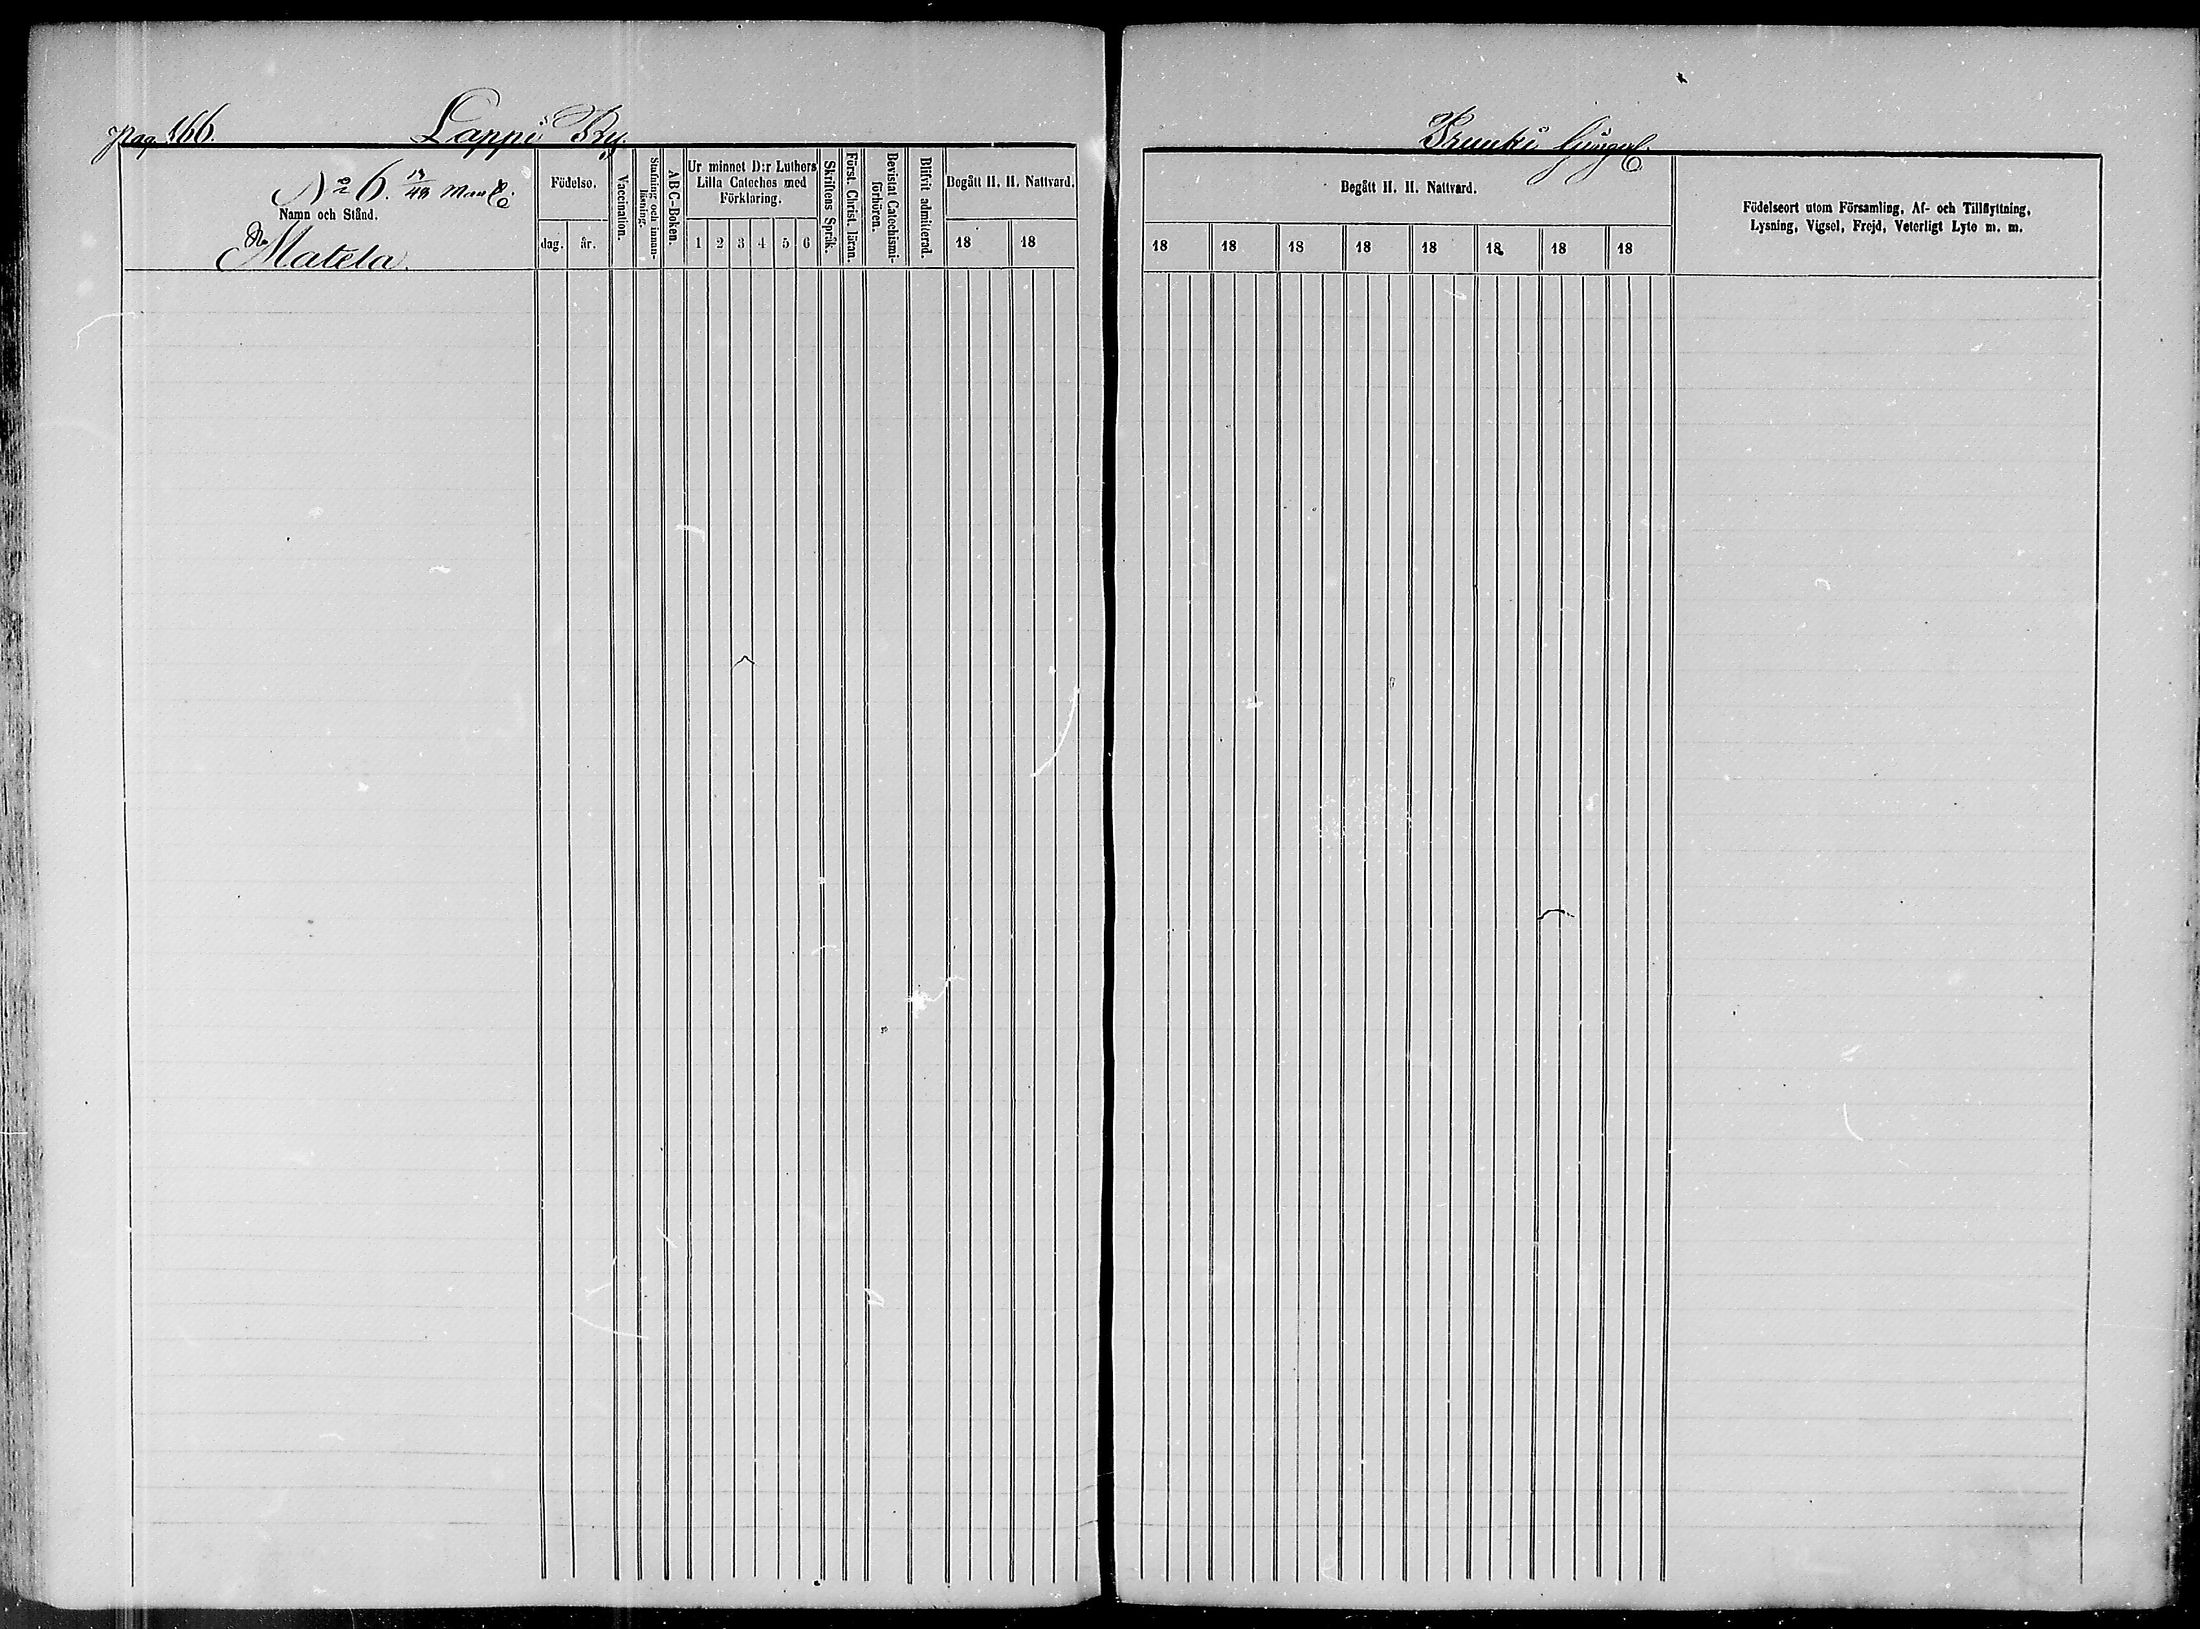 Pag. 166.
Lappi By.
No 6. Mantl.
Namn och Stånd.
Matela.
Födelse.
dag.
år.
Vaccination.
Stafning och innan-
läsning.
ABC-Boken.
Ur minnet D:r Luthers
Lilla Cateches med
Förklaring.
1 2 3 4 5 6
Skriftens Språk.
Först. Christ. läran.
Bevistat Catechismi-
förhören.
Blifvit admitterad.
Begått H. H. Nattvard.
18 18
Begått H. H. Nattvard.
18 18 18 18 18 18 18 18
Födelseort utom Församling, Af- och Tillflyttning,
Lysning, Vigsel, Frejd, Veterligt Lyte m. m.